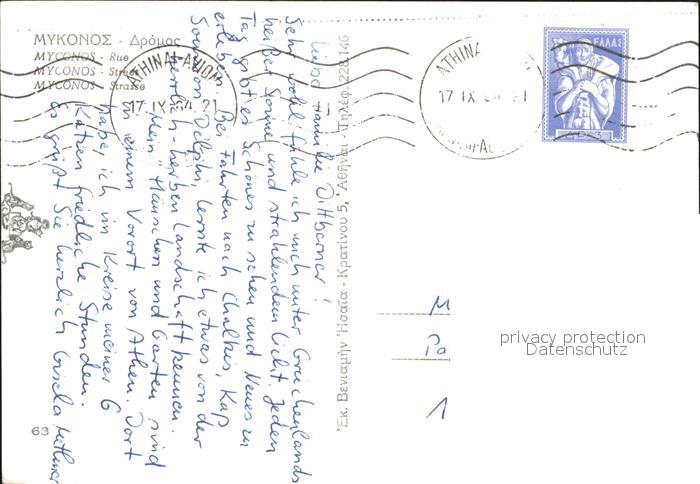 ΜΥΚΟΝΟΣ - Δρόμος
MYCONOS - Rue
MYCONOS - Street
MYCONOS - Strasse
ΑΘΗΝΑΙ-ΑΧΙΟΜ
17·IX 64·21
ATHINA
17 IX 64 21
ΕΛΛΑΣ
ΔΡ 3
Liebe Familie Dittberner!
Sehr wohl fühle ich mich unter Griechenlands
heißer Sonne und strahlendem Licht. Jeden
Tag gibt es Schönes zu sehen und Neues zu
erleben. Bei Fahrten nach Chalkis, Kap
Sounion, Delphi, lernte ich etwas von der
herrlich-herben Landschaft kennen.
"Mein" Häuschen und Garten sind
in einem Vorort von Athen. Dort
habe ich im Kreise meiner 6
Katzen friedliche Stunden.
Es grüßt Sie herzlich Gisela
Ἐκ. Βενιαμὴν Ἠσαΐα - Κρατίνου 5, Ἀθῆναι - Τηλέφ. 228.146
M
Po
1
63
privacy protection
Datenschutz